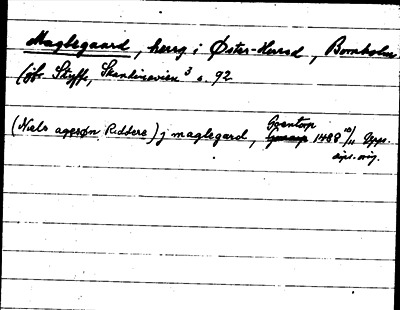 Maglegaard, herrg i Øster-Herred, Bornholm
(jfr. Styffe, Skandinavien³ s. 92.
(Niels agesøn Riddere) j maglegard, Gorntorp 1488 10/11 Upps.
dipl. orig.